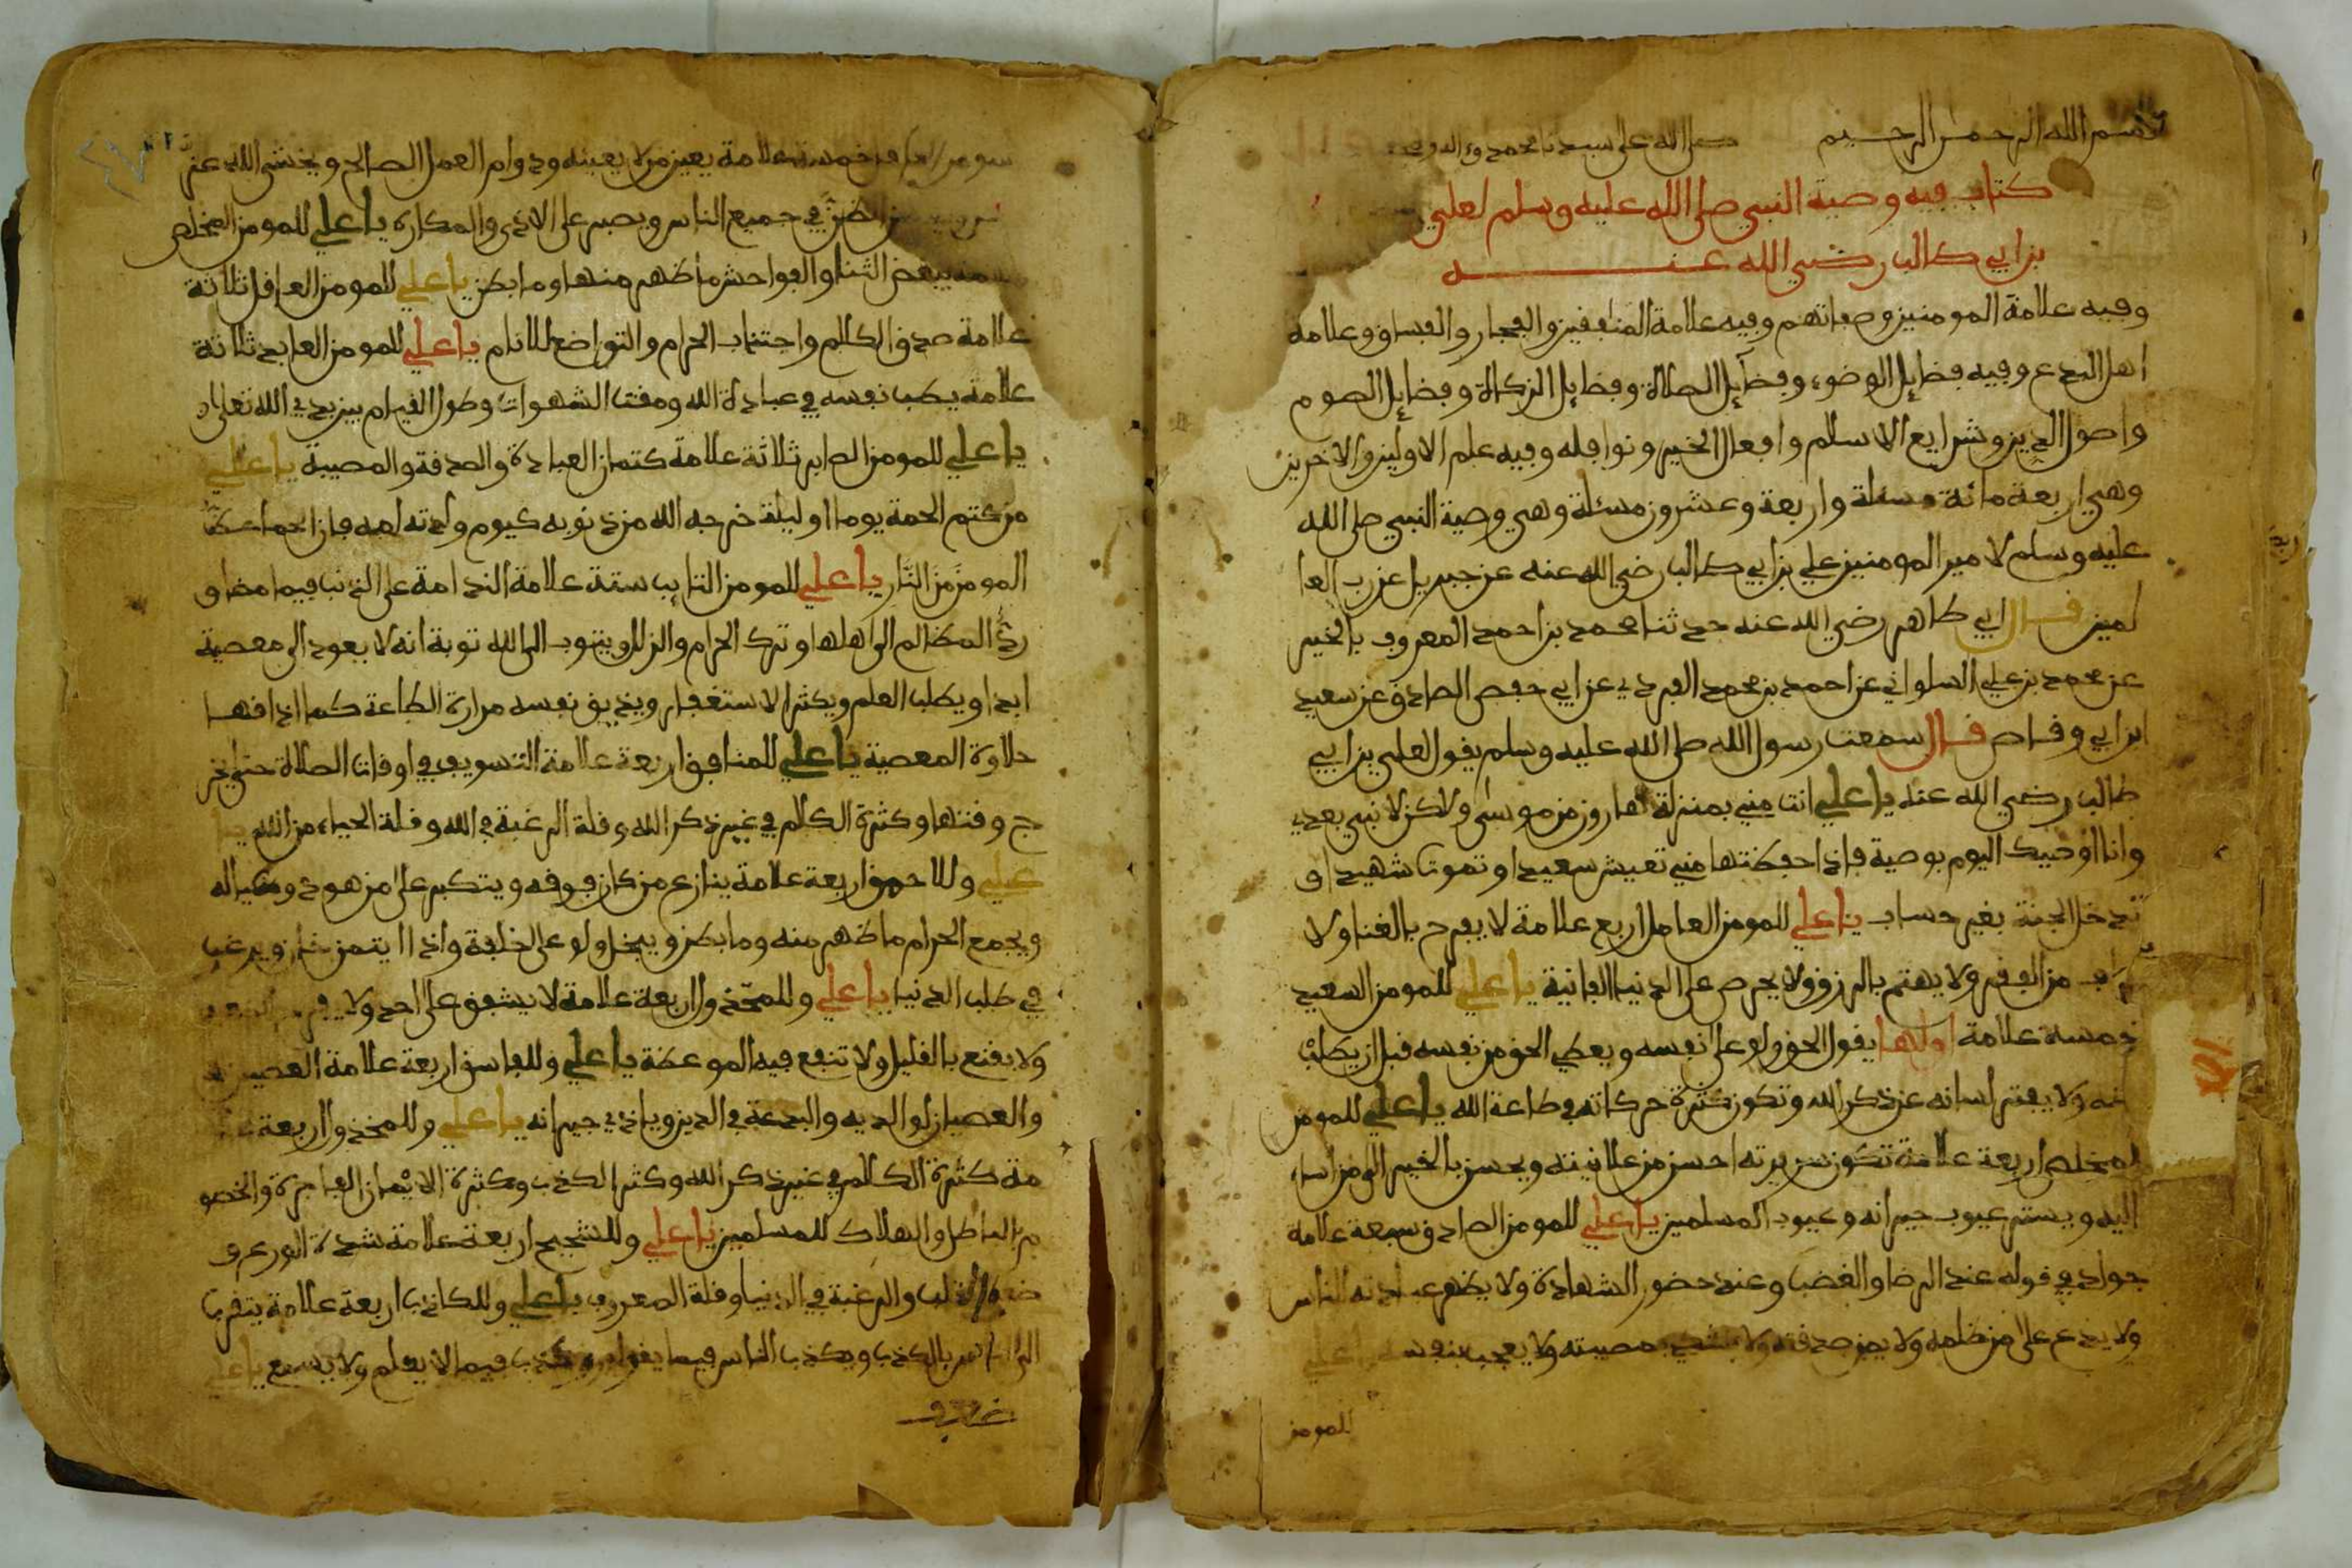 بسم الله الرحمن الرحيم صلى الله على سيدنا محمد وءاله
كتاب فيه وصية النبي صلى الله عليه وسلم لعلي
بن ابي طالب رضي الله عنه
وفيه علامة المومنين وصفاتهم وفيه علامة المنافقين والفجار والفساق وعلامة
اهل البدع وفيه فضايل الوضوء وفضآيل الصلاة وفضايل الزكاة وفضايل الصوم
واصول الدين وشرايع الاسلام وافعال الخير ونوافله وفيه علم الاولين والاخرين
وهي اربعة مائة مسئلة واربعة وعشرون مسئلة وهي وصية النبي صلى الله
عليه وسلم لامير المومنين علي بن ابي طالب رضي الله عنه عن جبريل عن رب العا
لمين قال ابي طاهر رضي الله عنه حدثنا محمد بن احمد المعروف بالخير
عن محمد بن علي السلواني عن احمد بن محمد البردي عن ابي حفص الصادق عن سعيد
ابن ابي وقاص قال سمعت رسول الله صلى الله عليه وسلم يقول لعلي بن ابي
طالب رضي الله عنه يا علي انت مني بمنزلة هارون من موسى ولاكن لا نبي بعدي
وانا اوصيك اليوم بوصية فاذا حفظتها مني تعيش سعيدا وتموت شهيدا و
تدخل الجنة بغير حساب يا علي للمومن العامل اربع علامة لا يفرح بالغنا ولا
من الفقر ولا يهتم بالرزق ولا يحرص على الدنيا الفانية يا علي للمومن السعيد
خمسة علامة اولها يقول الحق ولو على نفسه ويعطي الحق من نفسه قبل ان يطلب
منه ولا يفتر لسانه عن ذكر الله وتكون كثرة حركاته في طاعة الله يا علي للمومن
المخلص اربعة علامة تكون سريرته احسن من علانيته ويحسن بالخير الى من اساء
اليه ويستر عيوب جيرانه وعيوب المسلمين يا علي للمومن الصادق سبعة علامة
جواد في قوله عند الرضا والغضب وعند حضور الشهادة ولا يظهر عبادته للناس
ولا يدع على من ظلمه ولا يمن صدقته ولا مصيبته ولا يعجب بنفسه يا علي
للمومن
خمسة علامة يعين من لا يعينه ودوام العمل الصالح ويخشى الله عز
الظن في جميع الناس ويصبر على الاذى والمكاره يا علي للمومن المخلص
يبغض الثنا والفواحش ما ظهر منها وما بطن يا علي للمومن العاقل ثلاثة
علامة صدق الكلام واجتناب الحرام والتواضع للانام يا علي للمومن العابد ثلاثة
علامة يطب نفسه في عبادة الله ومقت الشهوات وطول القيام بين يدي الله تعالى
يا علي للمومن الصابر ثلاثة علامة كتمان العبادة والصدقة والمصيبة يا علي
من كتم الحمة يوما او ليلة خرجه الله من ذنوبه كيوم ولدته امه فان الحما حظ
المومن من النار يا علي للمومن التايب ستة علامة الندامة على الذنب فيما مضا و
رد المظالم الى اهلها وترك الحرام والزلل ويتوب الى الله توبة انه لا يعود الى معصية
ابدا ويطلب العلم ويكثر الاستغفار ويذيق نفسه مرارة الطاعة كما اذاقها
حلاوة المعصية يا علي للمنافق اربعة علامة التسويف في اوقات الصلاة حتى تخر
ج وقتها وكثرة الكلام في غير ذكر الله وقلة الرغبة في الله وقلة الحياء من الله يا
علي وللاحمق اربعة علامة ينازع من كان فوقه ويتكبر على من هو دونه
ويجمع الحرام ما ظهر منه وما بطن ويبخل ولو على الخليفة واذا ايتمن خان ويرغب
في طلب الدنيا يا علي وللمخذول اربعة علامة لا يشفق على احد ولا
ولا يقنع بالقليل ولا تنفع فيه الموعظة يا علي وللفاسق اربعة علامة
والعصيان لوالديه والبدعة في الدين وياذي جيرانه يا علي وللمخذول اربعة علا
مة كثرة الكلام في غير ذكر الله وكثر الكذب وكثرة الايمان الفاجرة والخصو
م الباطل والهلاك للمسلمين يا علي وللشحيح اربعة علامة شدة الورع و
والرغبة في الدنيا وقلة المعروف يا علي وللكاذب اربعة علامة يتقرب
الى الناس بالكذب ويكذب الناس فيما يقول فيما لا يعلم ولا يسمع يا علي